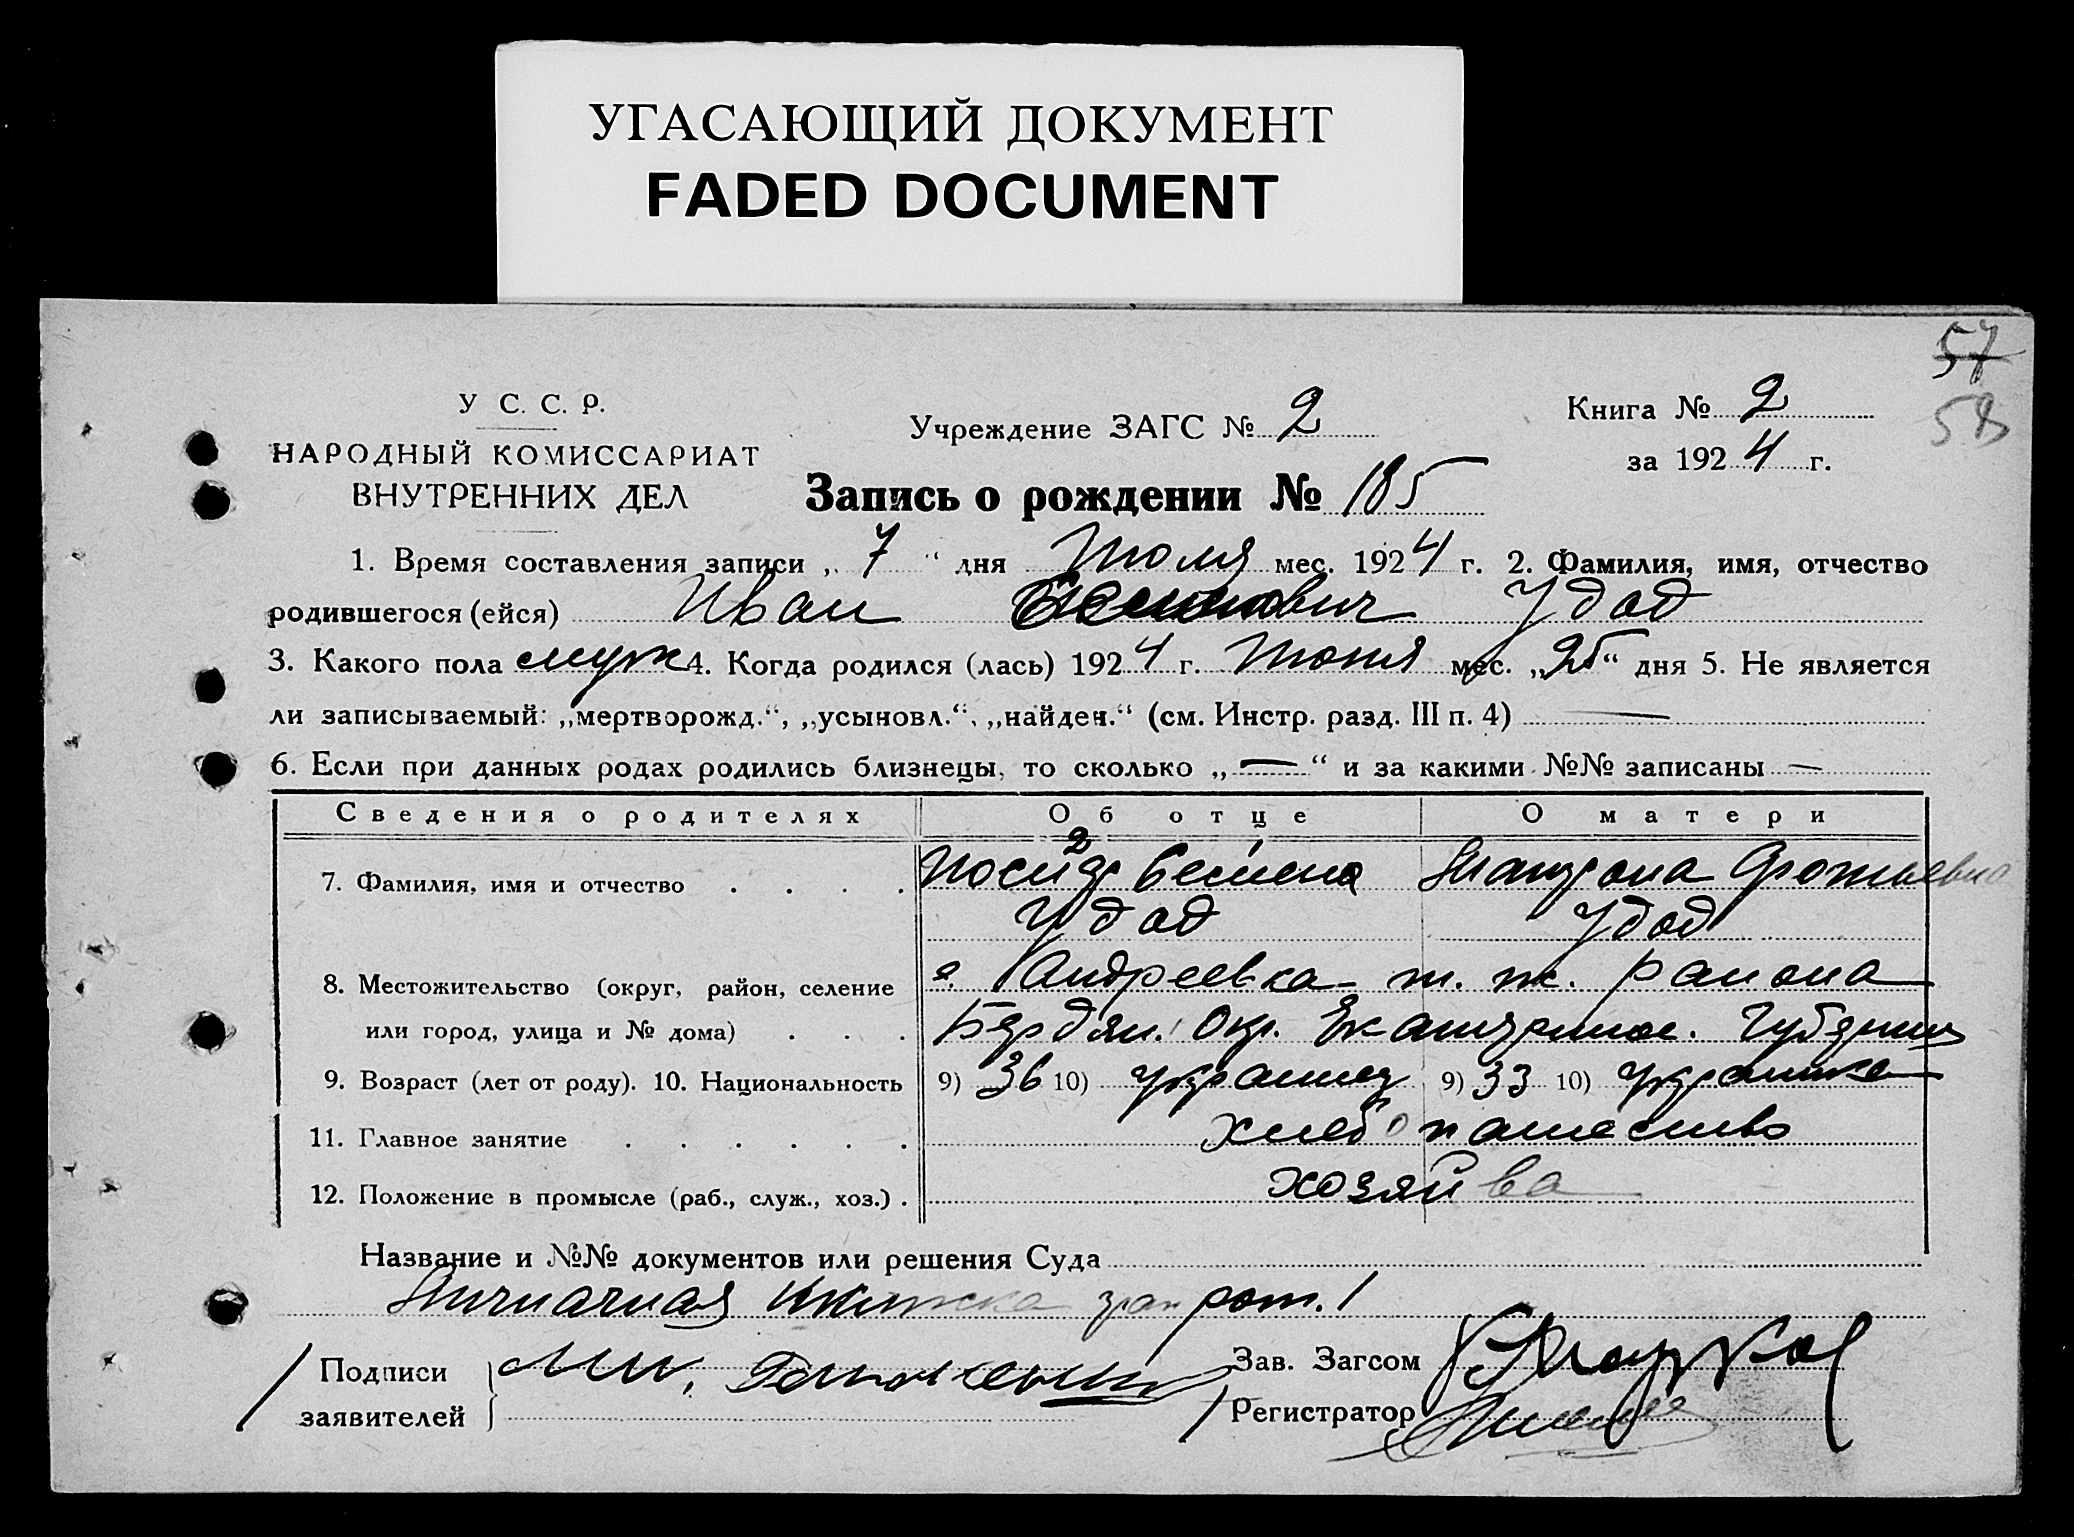 УГАСАЮЩИЙ ДОКУМЕНТ
FADED DOCUMENT
57
58
У С. С. Р.
НАРОДНЫЙ КОМИССАРИАТ
ВНУТРЕННИХ ДЕЛ
Учреждение ЗАГС № 2
Книга № 2
за 1924 г.
Запись о рождении № 185
1. Время составления записи „ 7 “ дня Июля мес. 1924 г. 2. Фамилия, имя, отчество
родившегося (ейся) Иван Удод
3. Какого пола муж 4. Когда родился (лась) 1924 г. Июня мес. „25“ дня 5. Не является
ли записываемый: „мертворожд.“, „усыновл.“, „найден.“ (см. Инстр. разд. III п. 4) —
6. Если при данных родах родились близнецы, то сколько „—“ и за какими №№ записаны —
Сведения о родителях Об отце О матери
7. Фамилия, имя и отчество . . . . Фотиевна
Удод Удод
8. Местожительство (округ, район, селение с. Андреевка т. ж. района
или город, улица и № дома) . . . Бердян. Окр. Екатеринос. Губернии
9. Возраст (лет от роду). 10. Национальность 9) 36 10) украинец 9) 33 10) украинка
11. Главное занятие . . . . . . хлебопашество
12. Положение в промысле (раб., служ., хоз.) . хозяйва
Название и №№ документов или решения Суда
книжка 1
Подписи
заявителей
Зав. Загсом
Регистратор